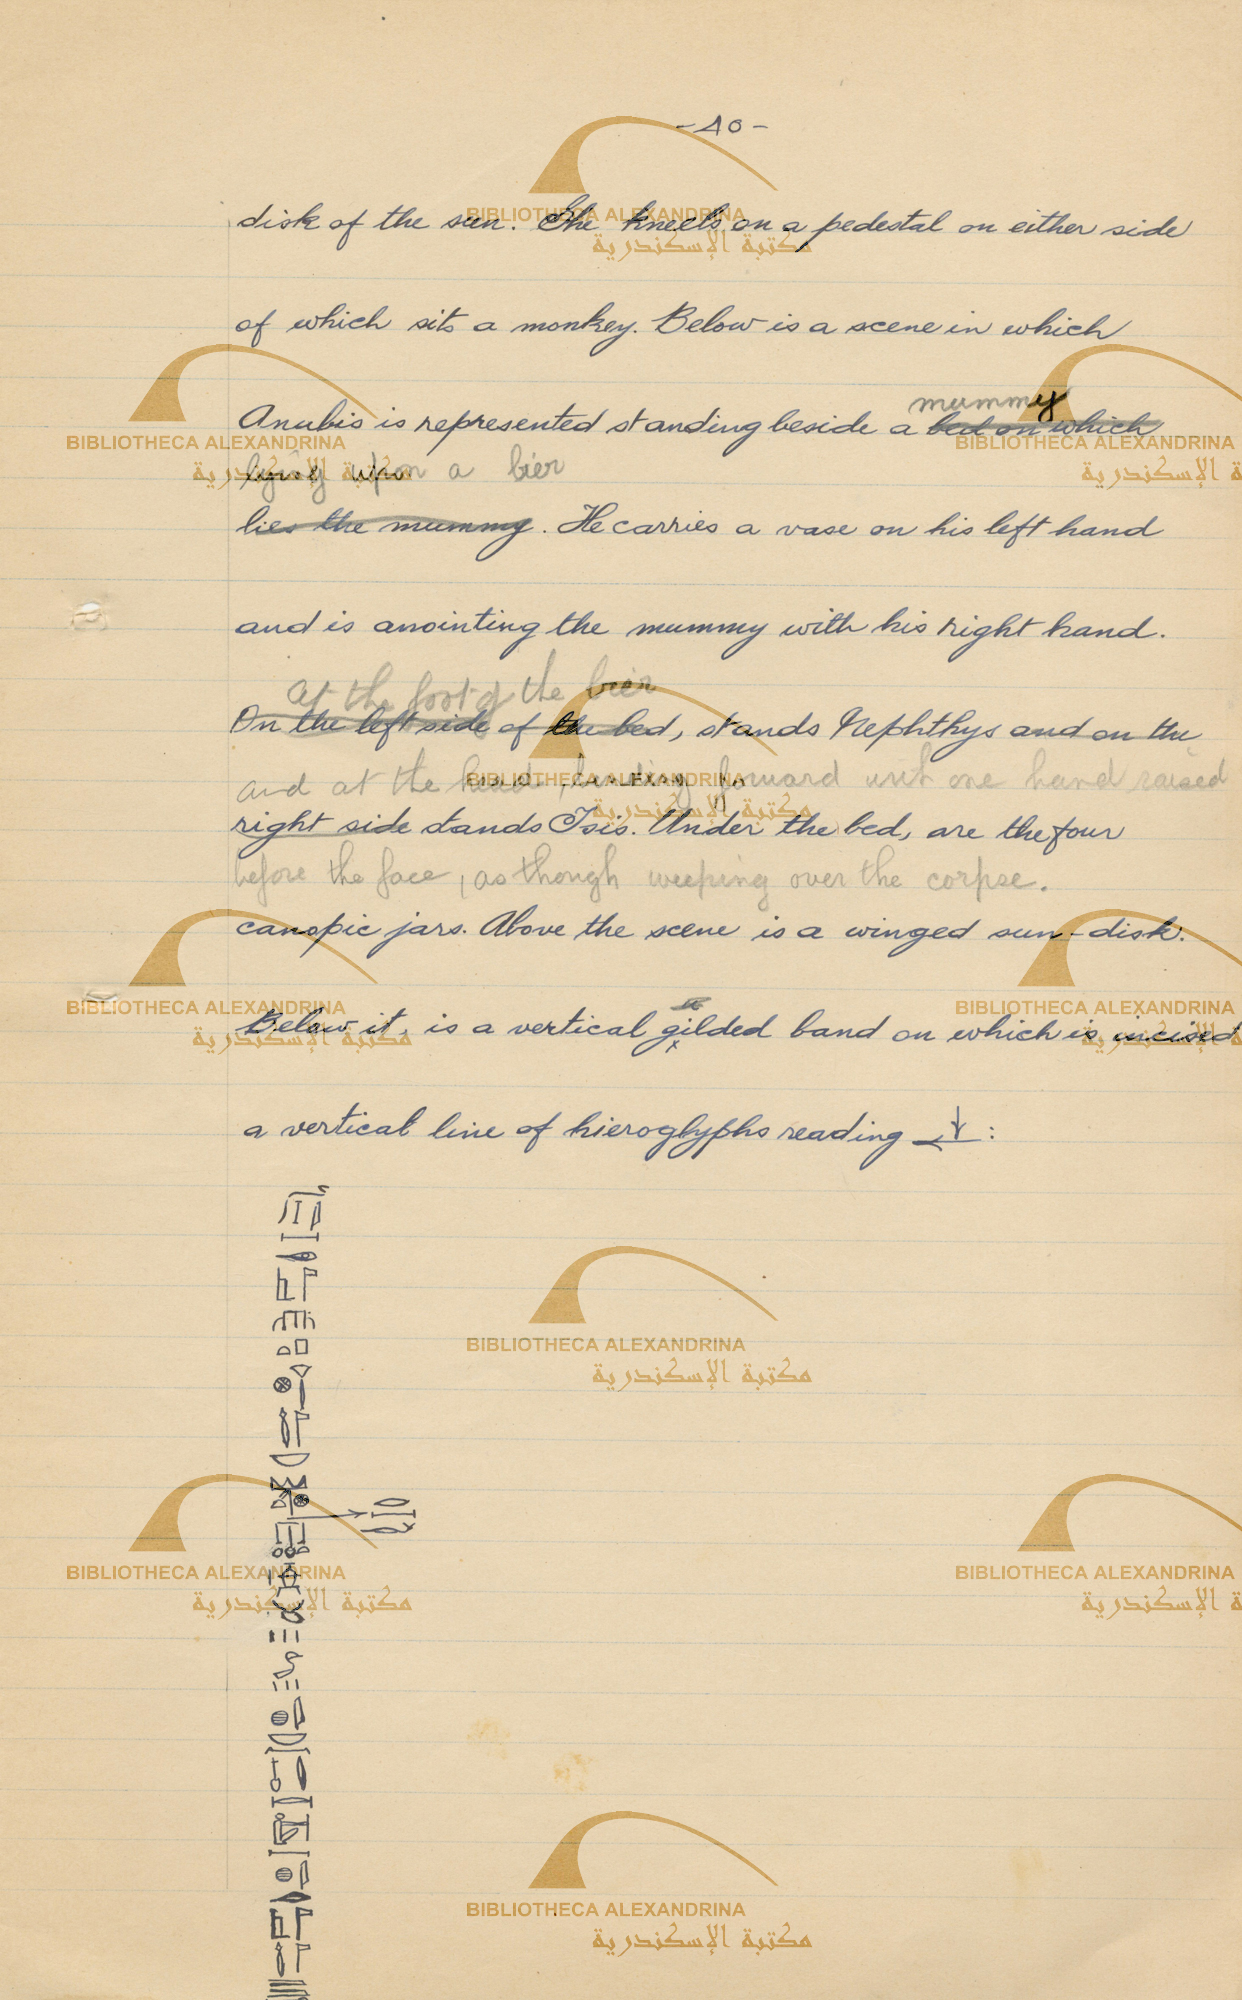 -40-
disk of the sun. She kneels on a pedestal on either side
of which sits a monkey. Below is a scene in which
mummy
Anubis is represented standing beside a bed on which
lying upon a bier
lies the mummy. He carries a vase on his left hand
and is anointing the mummy with his right hand.
at the foot of the bier
On the left side of the bed, stands Nephthys and on the
and at the head, bending forward with one hand raised
right side stands Isis. Under the bed, are the four
before the face, as though weeping over the corpse.
canopic jars. Above the scene is a winged sun-disk.
Below it, is a vertical gilded band on which is incised
a vertical line of hieroglyphs reading :
BIBLIOTHECA ALEXANDRINA
مكتبة الإسكندرية